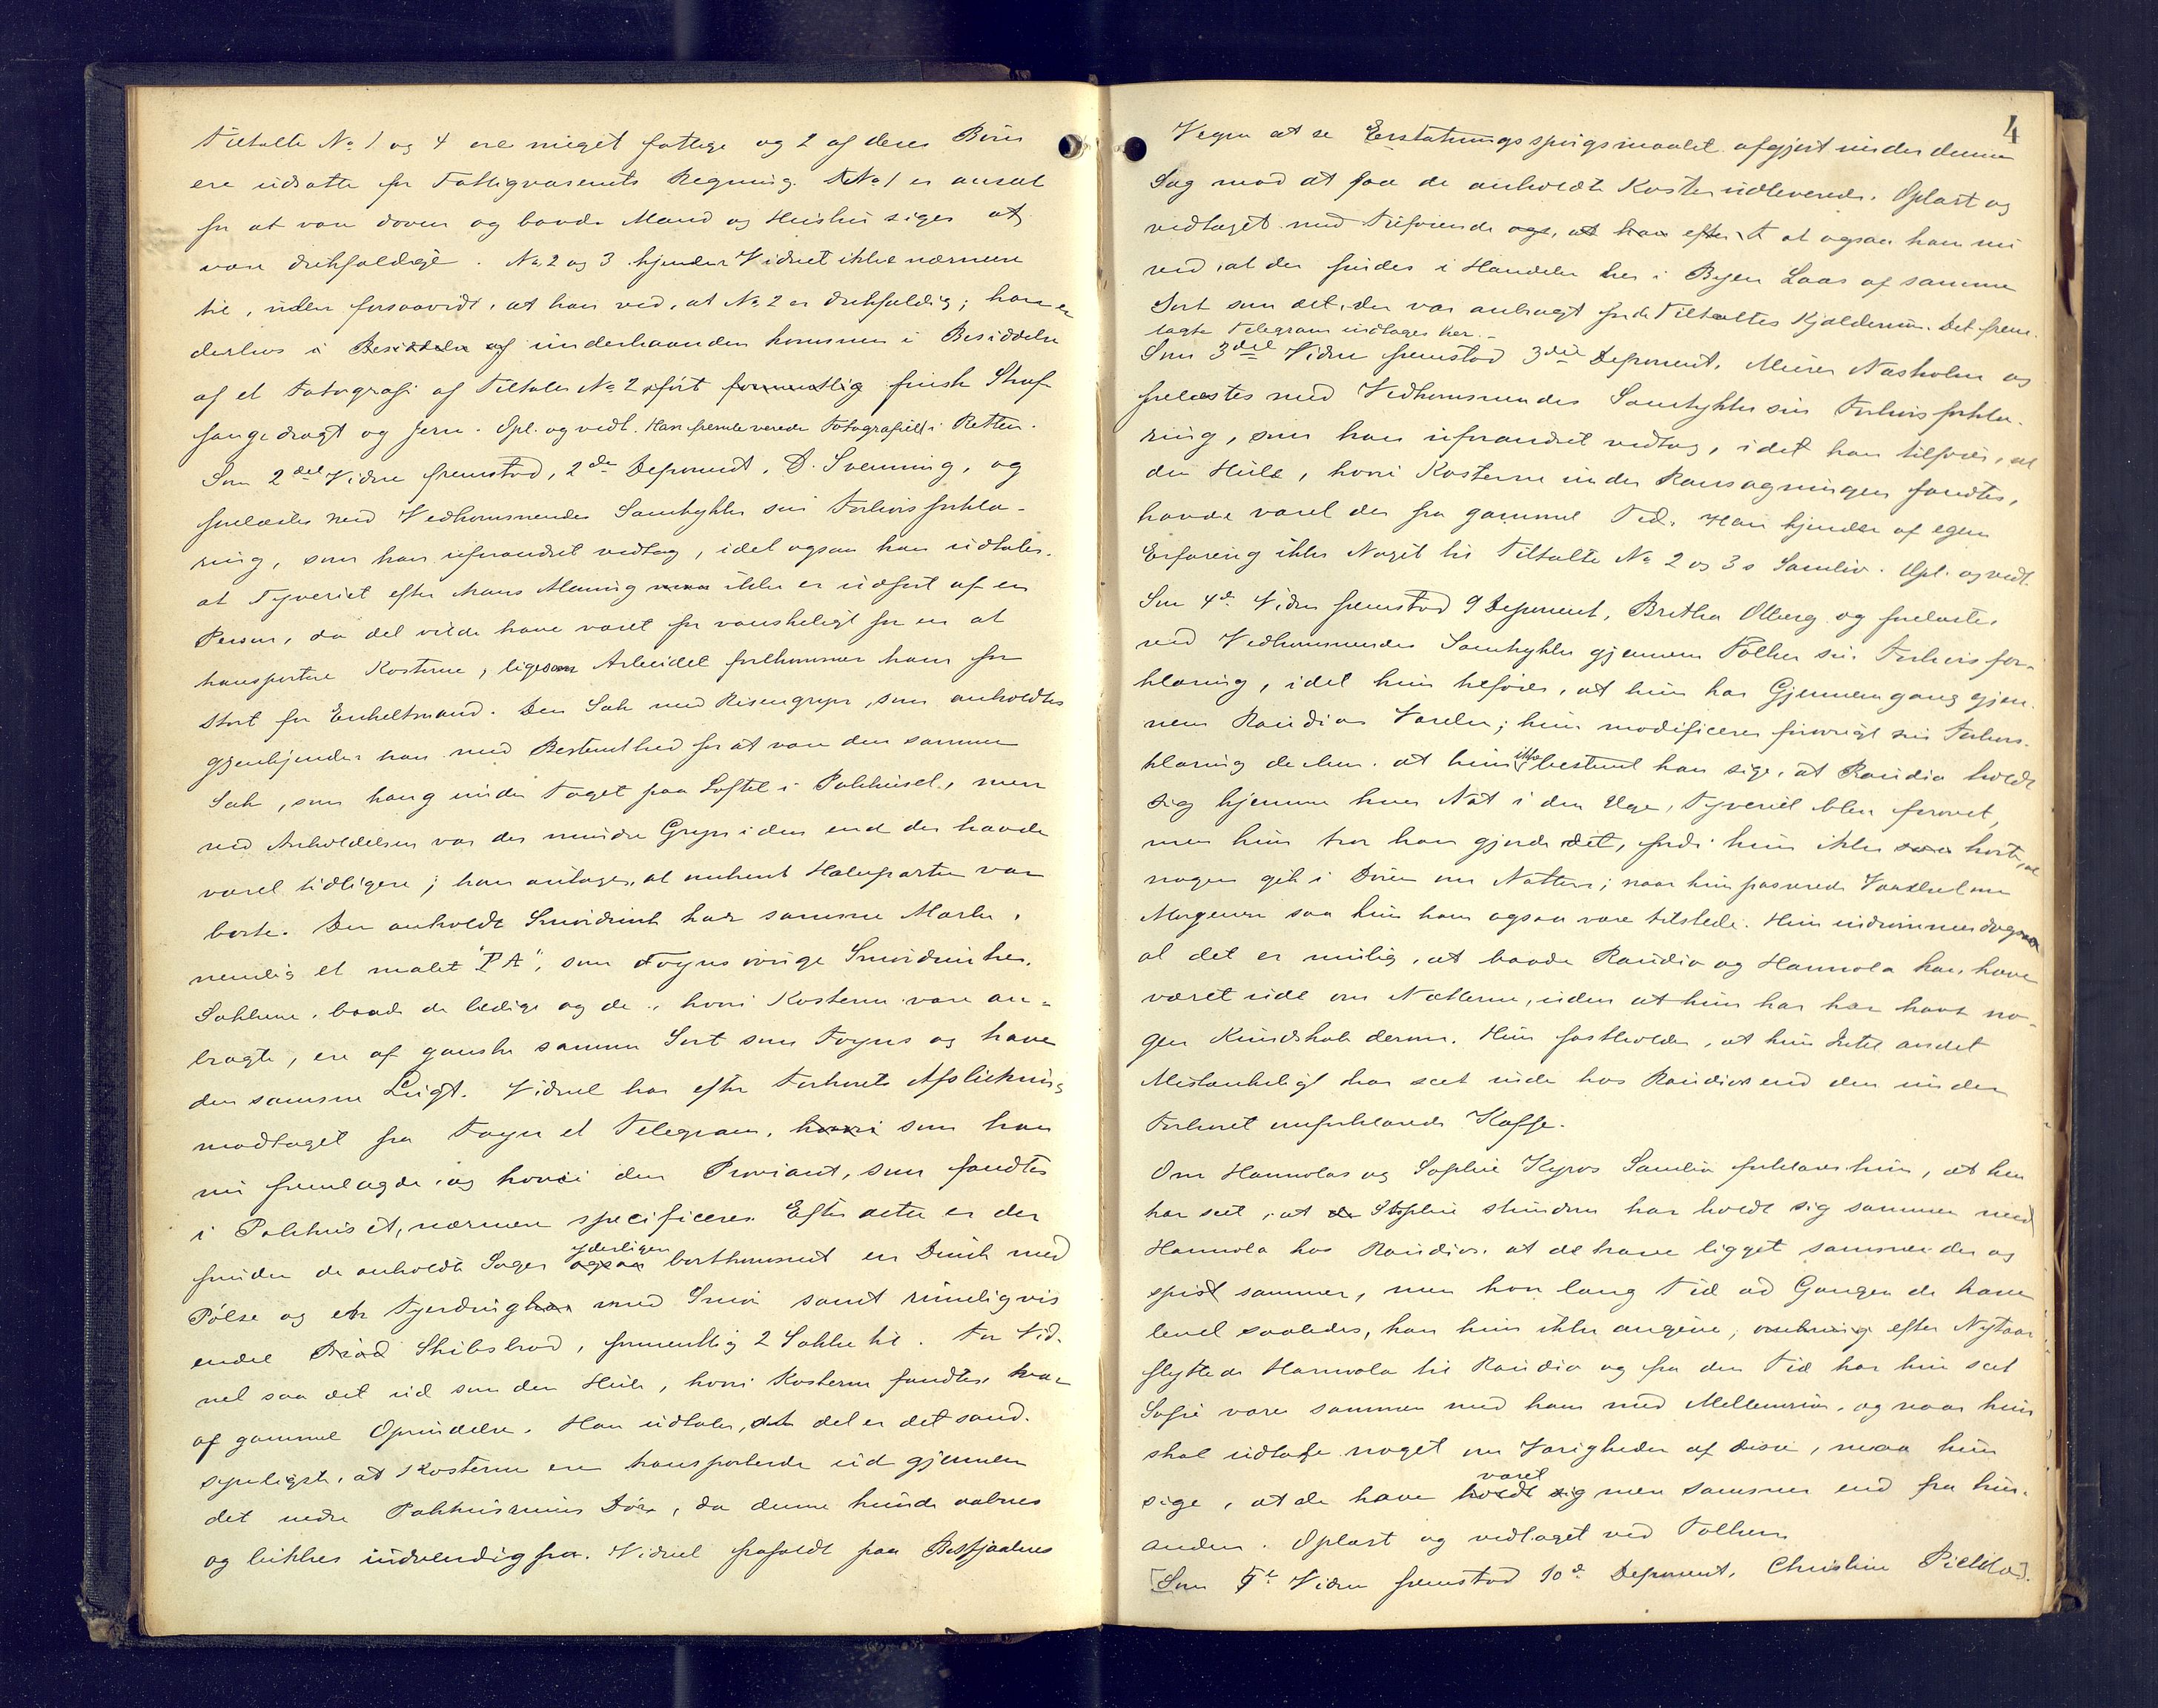 Tiltalte No 1 og 4 ere meget fattige og 2 af deres Børn
ere udsatte for Fattigvæsenets Regning. No 1 er anset
for at være doven og baade Mand og Hustru siges at
være drikfældige. No 2 og 3 kjender Vidnet ikke nærmere
til, uden forsaavidt, at han ved, at No 2 er drikfældig; han er
derhos i Besiddelse af underhaanden kommen i Besiddelse
af et Fotografi af Tiltalte No 2 iført formentlig finsk Straf
fangedragt og Jern. Opl. og vedt. Han fremleverede Fotografiet i Retten.
Som 2det Vidne fremstod, 2de Deponent, D. Svenning, og
forelæstes med Vedkommendes Samtykke sin Forhørsforkla-
ring, som han uforandret vedtog, idet ogsaa han udtaler,
at Tyveriet efter hans Mening ikke er udført af en
Person, da det vilde have været for vanskeligt for en at
transportere Kosterne, ligesom Arbeidet forekommer ham for
stort for Enkeltmand. Den Sæk med Risengryn, som anholdtes
gjenkjender han med Bestemthed for at være den samme
Sæk, som hang under Taget paa Loftet i Pakhuset, men
ved Anholdelsen var der mindre Gryn i den end der havde
været tidligere; han antager, at omtrent Halvparten var
borte. Den anholdte Smørdunk har samme Mærke,
nemlig et malet "P A", som Foyns øvrige Smørdunker.
Sækkene, baade de ledige og de, hvori Kosterne vare an-
bragte, ere af ganske samme Sort som Foyns og have
den samme Lugt. Vidnet har efter Forhørets Afslutning
modtaget fra Foyn et Telegram, hvori som han
nu fremlagde, og hvori den Proviant, som fandtes
i Pakhuset, nærmere specificeres. Efter dette er der
foruden de anholdte Sager ogsaa yderligere bortkommet en Dunk med
Pølse og en Fjerding med Smør samt rimeligvis
endel Brød Skibsbrød, formentlig 2 Sække til. For Vid-
net saa det ud som den Hule, hvori Kosterne fandtes, var
af gammel Oprindelse. Han udtaler, at det er det sand-
synligste, at Kosterne ere transporterede ud gjennem
det nedre Pakhusrums Dør, da denne kunde aabnes
og lukkes indvendig fra. Vidnet frafaldt paa Bossfjadnes
4
Vegne at se Erstatningsspørgsmaalet afgjort under denne
Sag mod at faa de anholdte Koster udleverede. Oplæst og
vedtaget med Tilføiende ogs, at han efter at ogsaa han nu
ved, at der findes i Handelen her i Byen Laas af samme
Sort som det, der var anbragt for de Tiltaltes Kjælderrum. Det frem-
lagte Telegram indtages her.
Som 3die Vidne fremstod 3die Deponent, Murer Næsholm og
forelæstes med Vedkommendes Samtykke sin Forhørsforkla-
ring, som han uforandret vedtog, idet han tilføier, at
den Hule, hvori Kosterne under Ransagningen fandtes,
havde været der fra gammel Tid. Han kjender af egen
Erfaring ikke Noget til Tiltalte No 2 og 3s Samliv. Opl. og vedt.
Som 4de Vidne fremstod 9 Deponent, Bretha Olberg og forelæstes
med Vedkommendes Samtykke gjennem Tolken sin Forhørsfor-
klaring, idet hun tilføier, at hun har Gjennemgang gjen-
nem Raudios Værelse; hun modificerer forøvrigt sin Forhørs-
klaring derhen, at hun ikke bestemt kan sige, at Raudio holdt
sig hjemme hver Nat i den Uge, Tyveriet blev forøvet,
men hun tror han gjorde det, fordi hun ikke hørte, at
nogen gik i Døren om Natten; naar hun passerede Værelset om
Morgenen saa hun ham ogsaa være tilstede. Hun indrømmer dog
at det er mulig, at baade Raudio og Hannola kan have
været ude om Nætterne, uden at hun har har havt no-
gen Kundskab derom. Hun fastholder, at hun Intet andet
Mistænkeligt har seet inde hos Raudios end den under
Forhøret omforklarede Kaffe.
Om Hannolas og Sophie Kyros Samliv forklarer hun, at hun
har seet, at Sophie stundom har holdt sig sammen med
Hannola hos Raudios, at de have ligget sammen der og
spist sammen, men hvor lang Tid ad Gangen de have
levet saaledes, kan hun ikke angive; omkring efter Nytaar
flyttede Hannola til Raudio og fra den Tid har hun seet
Sofie være sammen med ham med Mellemrum, og naar hun
skal udtale noget om Varigheden af disse, maa hun
sige, at de have holdt sig været mere sammen end fra hin-
anden. Oplæst og vedtaget ved Tolken.
[Som 5te Vidne fremstod 10de Deponent, Christine Pielila].